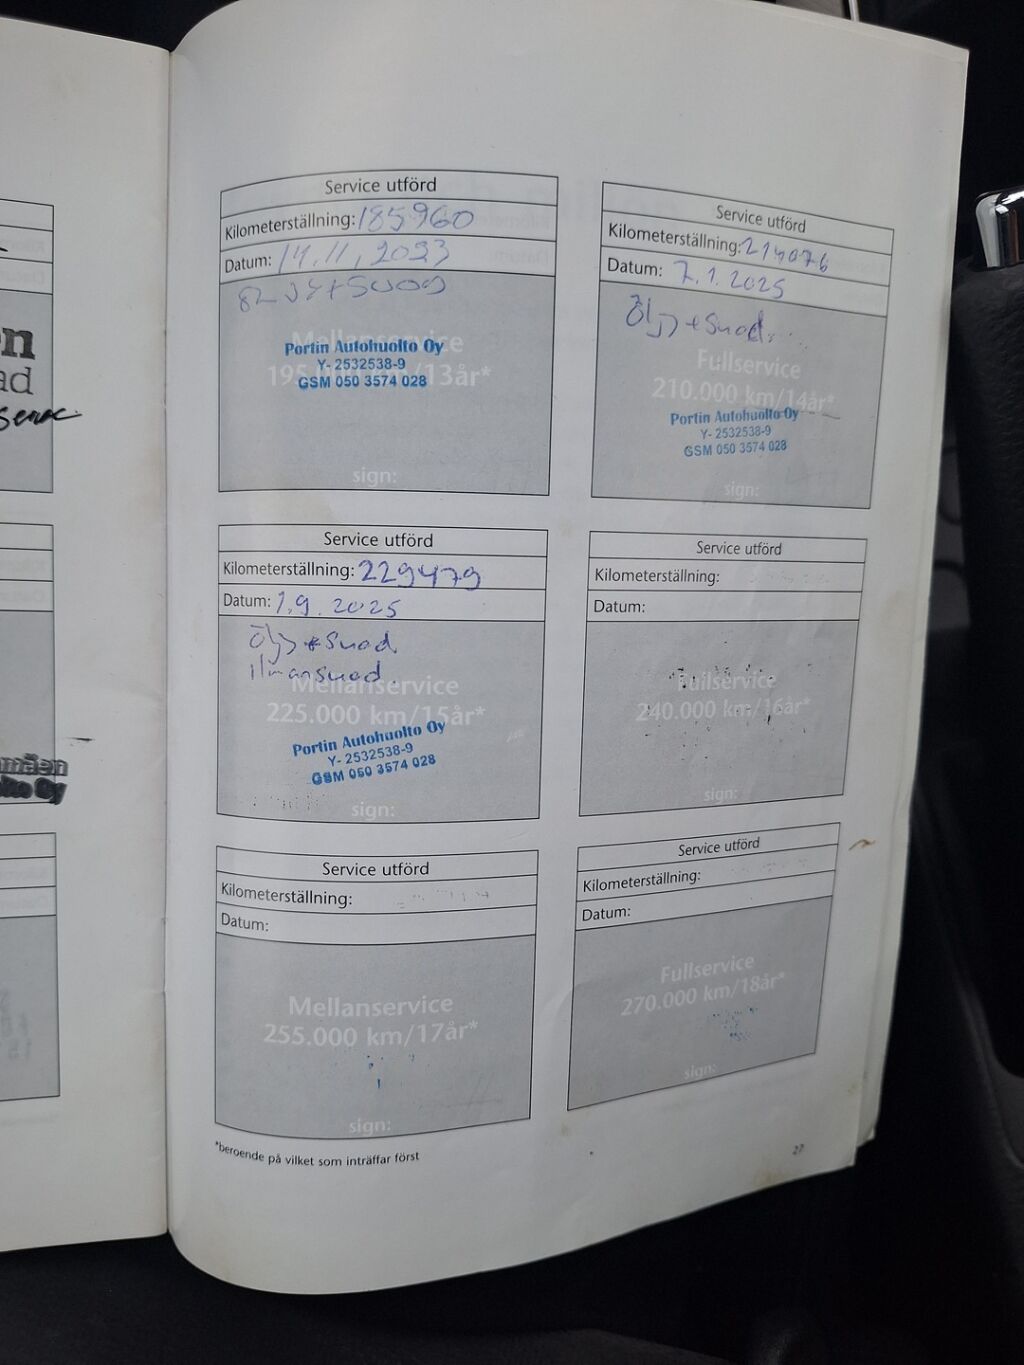 Service utförd
Kilometerställning: 185960
Datum: 14.11.2023
Mellanservice
195.000 km/13år*
Portin Autohuolto Oy
Y- 2532538-9
GSM 050 3574 028
sign:
Service utförd
Kilometerställning: 214076
Datum: 7.1.2025
Öljy + suod.
Fullservice
210.000 km/14år*
Portin Autohuolto Oy
Y- 2532538-9
GSM 050 3574 028
sign:
Service utförd
Kilometerställning: 229479
Datum: 1.9.2025
Öljy + suod
ilmansuod.
Mellanservice
225.000 km/15år*
Portin Autohuolto Oy
Y- 2532538-9
GSM 050 3574 028
sign:
Service utförd
Kilometerställning:
Datum:
Fullservice
240.000 km/16år*
sign:
Service utförd
Kilometerställning:
Datum:
Mellanservice
255.000 km/17år*
sign:
Service utförd
Kilometerställning:
Datum:
Fullservice
270.000 km/18år*
sign:
*beroende på vilket som inträffar först
27